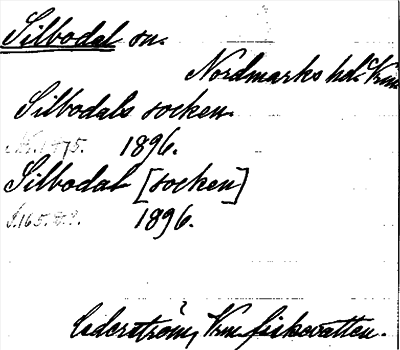 Silbodal sn.
Nordmarks hd. Vrm
Silbodals socken.
1896.
Silbodal [socken]
1896.
Cederström, Vrm. fiskevatten.